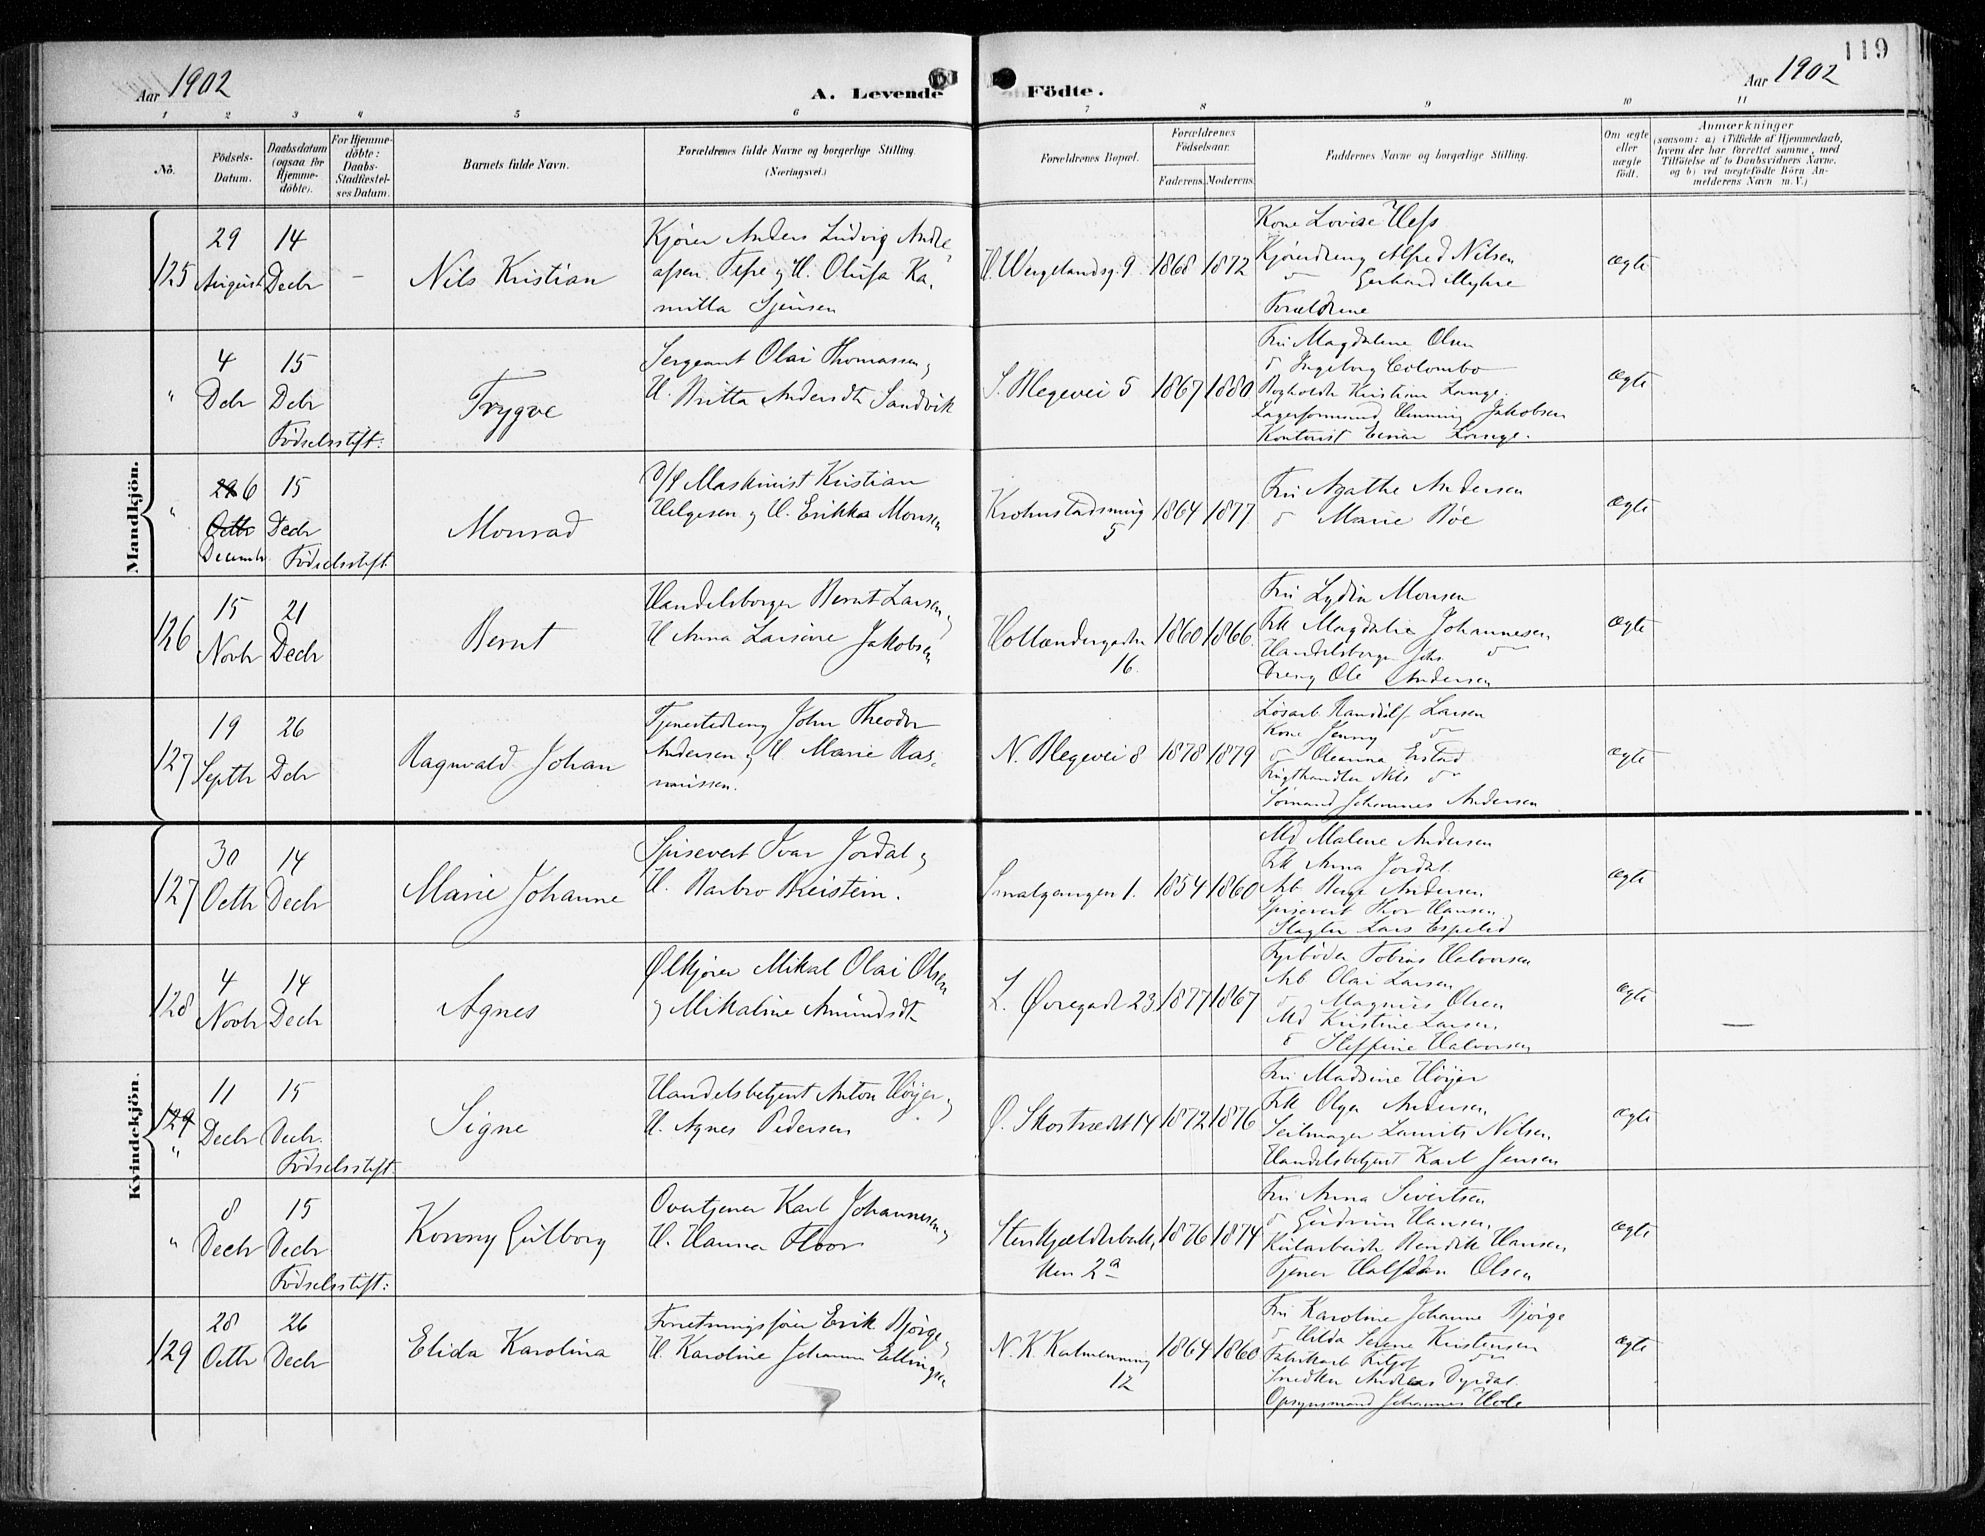 119
Aar 1902
A. Levende Födte.
Aar 1902
1 2 3 4 5 6 7 8 9 10 11
No.
Födsels-Datum.
Daabsdatum (ogsaa for Hjemme-döbte).
For Hjemme-döbte: Daabs-Stadfæstel-ses Datum.
Barnets fulde Navn.
Forældrenes fulde Navne og borgerlige Stilling.
(Næringsvei.)
Forældrenes Bopæl.
Forældrenes Födselsaar.
Faderens. Moderens.
Faddernes Navne og borgerlige Stilling.
Om ægte eller uægte födt.
Anmærkninger
(saasom: a) i Tilfælde af Hjemmedaab,
hvem der har forrettet samme, med
Tilföielse af to Daabsvidners Navne,
og b) ved uægtefödte Börn An-
melderens Navn m. V.)
Mandkjön.
125
29 August
14 Decbr
–
Nils Kristian
Kjører Anders Ludvig Andre-
assen og H. Olufa Ka-
milla
H. Wergelandsg. 9
1868 1872
Kone Lovise Hess
Kjøredreng Alfred Nilsen
do Gerhard Myhre
Forældrene
ægte
"
4 Debr
15 Debr
Födselsstift:
Trygve
Sergeant Olai Thomassen og
H. Britta Andersdtr Sandvik
S. Blegevei 5
1867 1880
Fru Magdalene Olsen
do Ingeborg Colombo
Bogholder Kristian Lange
Lagerformand Henning Jakobsen
Kontorist Einar Lange.
ægte
"
6
Decembr
15 Decbr
Födselsstift
Monrad
Maskinist Kristian
Helgesen og H. Erikka Monsen
Krohnstadsmug 5
1864 1877
Fru Agathe Andersen
do Marie Bøe
ægte
126
15 Novbr
21 Decbr
Bernt
Handelsborger Bernt Larsen og
H Anna Larsine Jakobsen
Hollændergaden 16.
1860 1866.
Fru Lydia Monsen
Frk Magdalie Johannesen
Handelsborger Johs. do
Dreng Ole Andersen
ægte
127
19 Septbr
26 Debr
Ragnvald Johan
Tjenestedreng John Theodor
Andersen og H Marie Ras-
mussen.
N. Blegevei 8
1878 1879
Løsarb Randulf Larsen
Kone Jenny do
do Oleanna Erstad
Frugthandler Nils do
Sømand Johannes Andersen
ægte
Kvindekjön.
127
30 Octbr
14 Decbr
Marie Johanne
Spisevert Ivar Jordal og
H. Barbro Breistein.
Smalgangen 1.
1854 1860
Md Malene Andersen
Frk Anna Jordal
Arb Berge Andersen
Spisevert Thor Hansen
Slagter Lars Espelid
ægte
128
4 Novbr
14 Decbr
Agnes
Ølkjører Mikal Olai Olsen
og Mikaline Amundsdtr
L. Øvregade 23.
1877 1867
Fyrbøder Tobias Halvorsen
Arb Olai Larsen
do Magnus Olsen
Md Kristine Larsen
do Steffine Halvorsen
ægte
–
129
"
11 Decbr
15 Decbr.
Födselsstift.
Signe
Handelsbetjent Anton Høyer og
H. Agnes Pedersen
Ø. Skostrædet 14
1872 1876
Fru Madsine Høyer
Frk Olga Andersen
Seilmager Laurits Nilsen
Handelsbetjent Karl Jensen
ægte
"
8 Decbr
15 Decbr
Födselsstift:
Konny Gulborg
Overtjener Karl Johannesen og
H. Hanna Floor
Stenkjælderbak-
ken 2a
1876 1874
Fru Anna Sivertsen
do Gudrun Hansen
Kularbeider Bendik Hansen
Tjener Halfdan Olsen
ægte
129
28 Octbr
26 Decbr
Elida Karolina
Forretningsfører Erik Bjørge og
H. Karoline Johanne Ellingsen
N. K. Kalmenning 12
1864 1860
Fru Karoline Johanne Bjørge
do Hilda Serene Kristensen
Fabrikarb Fritjof do
Snedker Andreas Dyrdal
Opsynsmand Johannes Hole
ægte